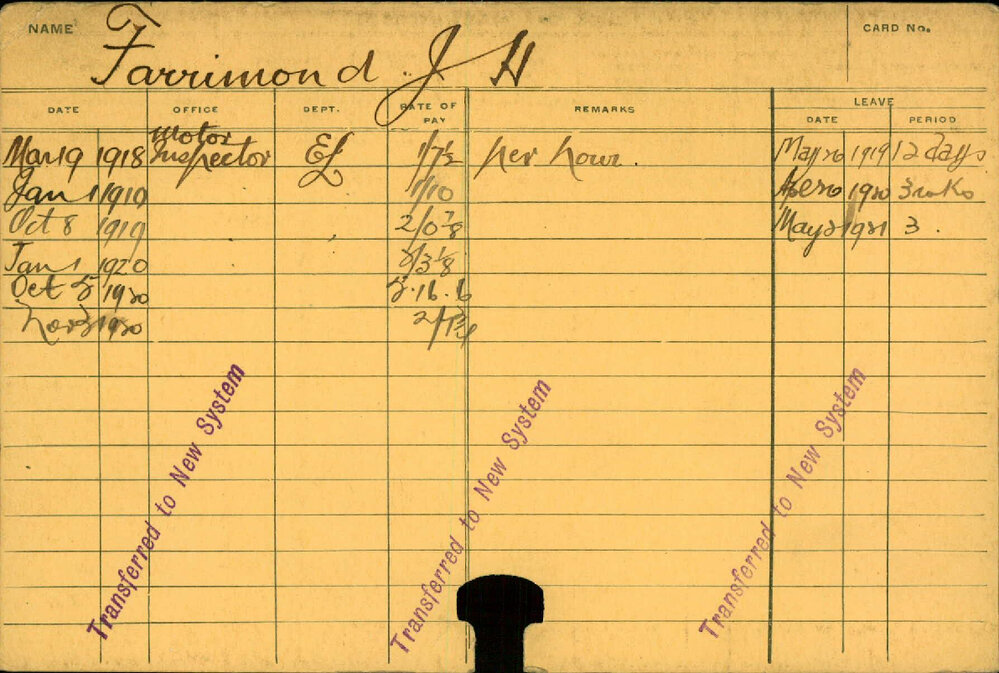 NAME Farrimond J H CARD No.
DATE OFFICE DEPT. RATE OF PAY REMARKS LEAVE
DATE PERIOD
Mar 19 1918 Motor Inspector EL 1/7½ per hour. May 20 1919 12 days
Jan 1 1919 1/10 1920 3 wks
Oct 8 1919 2/0⅞ May 2 1921 3.
Jan 1 1920 2/3⅛
Oct 5 1920 5.16.6
Nov 1920
Transferred to New System
Transferred to New System
Transferred to New System